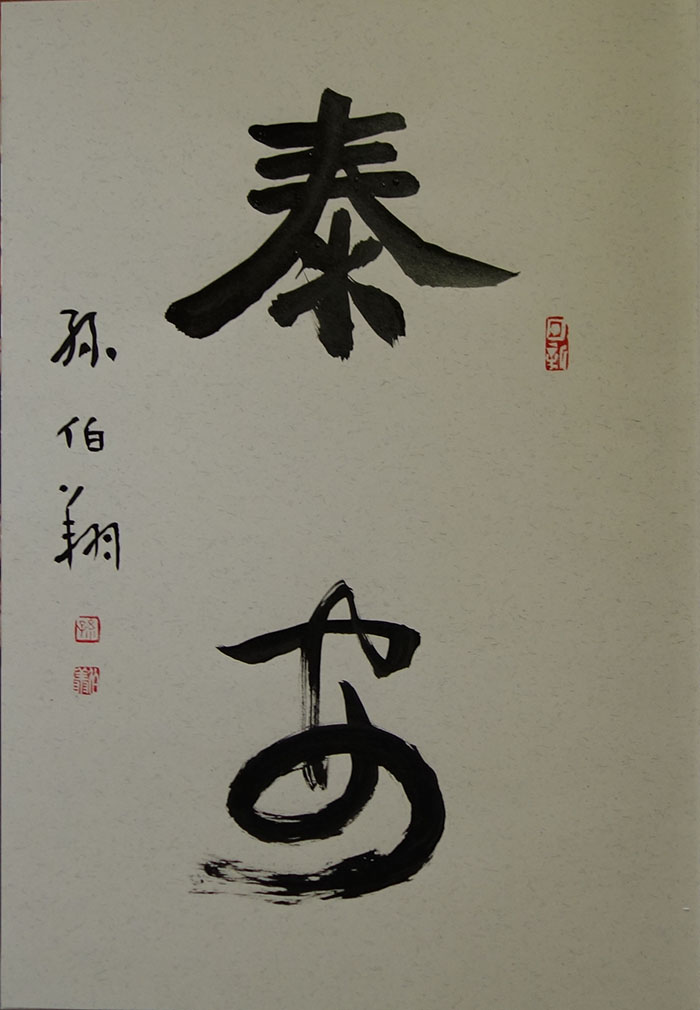 泰安
孫伯翔